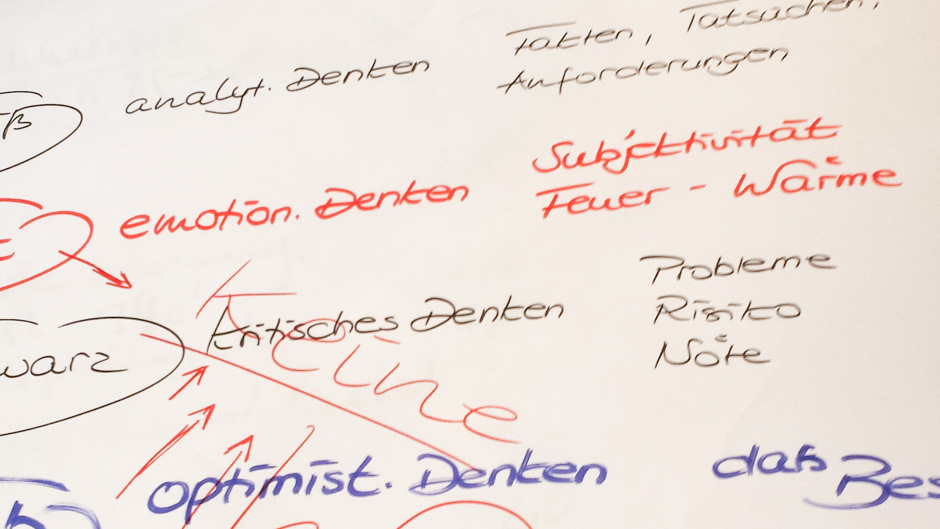 analyt. Denken Fakten, Tatsachen,
Anforderungen
emotion. Denken Subjektivität
Feuer - Wärme
kritisches Denken Probleme
Risiko
Nöte
Keine
optimist. Denken daß